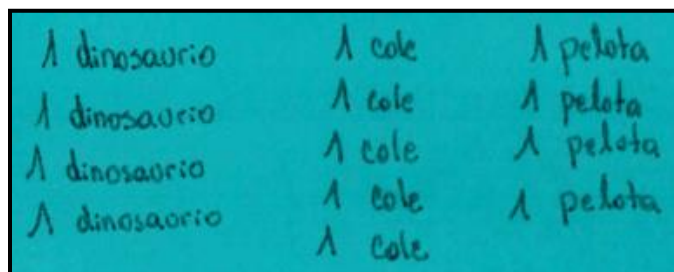 1 dinosaurio
1 dinosaurio
1 dinosaurio
1 dinosaurio
1 cole
1 cole
1 cole
1 cole
1 cole
1 pelota
1 pelota
1 pelota
1 pelota